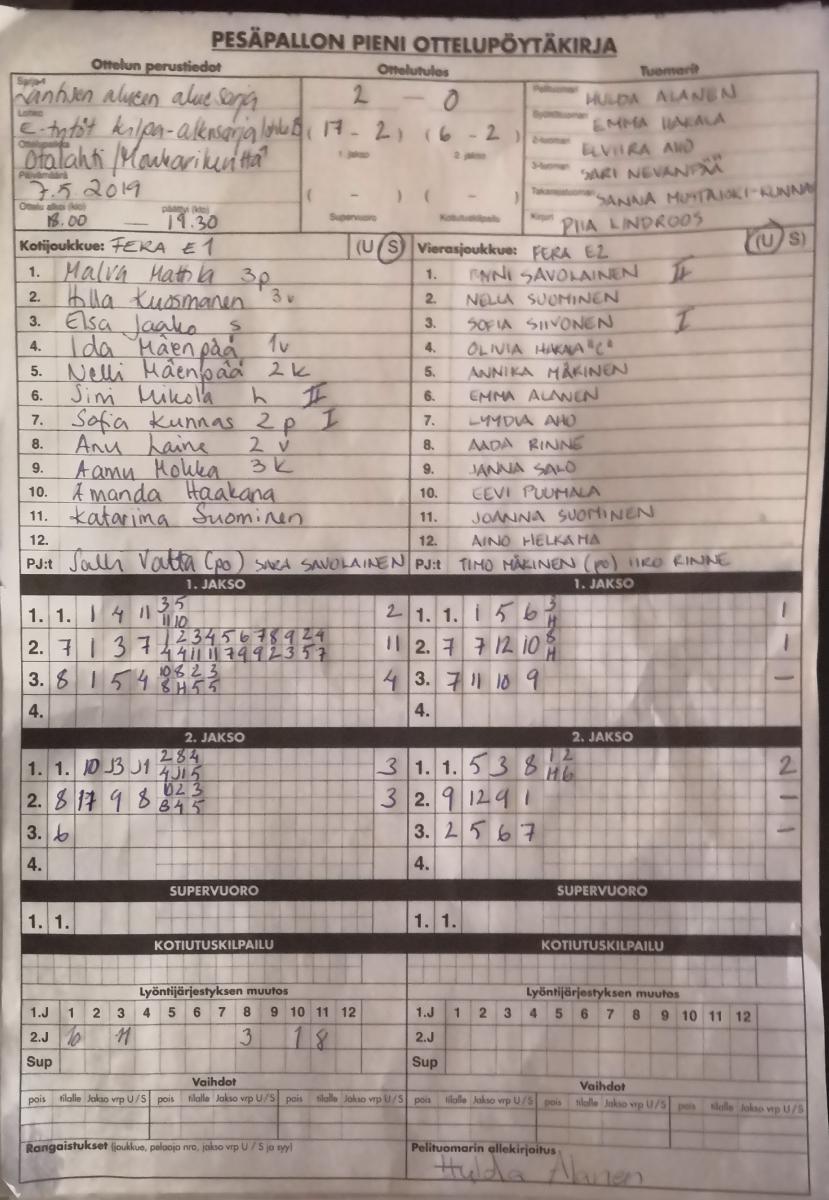 PESÄPALLON PIENI OTTELUPÖYTÄKIRJA
Ottelun perustiedot Ottelutulos Tuomarit
Sarja
Läntisen alueen aluesarja 2 — 0 Pelituomari HULDA ALANEN
Lohko
E-tytöt kilpa-alkusarja lohko B (17 - 2) (6 - 2) Syöttötuomari EMMA HAKALA
Ottelupaikka 1. jakso 2. jakso 2-tuomari ELVIIRA AHO
Otalahti / 
Päivämäärä 3-tuomari SARI NEVANPÄÄ
7.5.2019 ( - ) ( - ) Takarajatuomari SANNA
Ottelu alkoi (klo) päättyi (klo) Supervuoro Kotiutuskilpailu
18.00 — 19.30 Kirjuri PIIA LINDROOS
Kotijoukkue: FERA E1 (U S) Vierasjoukkue: FERA E2 (U S)
1. Malva Mattila 3p 1. ANNI SAVOLAINEN II
2. Hilla Kuosmanen 3v 2. NELLA SUOMINEN
3. Elsa Jaako s 3. SOFIA SIIVONEN I
4. Ida Mäenpää 1v 4. OLIVIA HAKALA "C"
5. Nelli Mäenpää 2k 5. ANNIKA MÄKINEN
6. Sini Mikola h II 6. EMMA ALANEN
7. Sofia Kunnas 2p I 7. LYYDIA AHO
8. Anu Laine 2v 8. AADA RINNE
9. Aamu Mokka 3k 9. JANNA SALO
10. Amanda Haakana 10. EEVI PUUMALA
11. Katariina Suominen 11. JOANNA SUOMINEN
12. 12. AINO HELKAMA
PJ:t Salli Vatta (po) SARA SAVOLAINEN PJ:t TIMO MÄKINEN (po) IIRO RINNE
1. JAKSO 1. JAKSO
3 5 3
1. 1. 1 4 11 11 10 2 1. 1. 1 5 6 H 1
1 2 3 4 5 6 7 8 9 2 4 8
2. 7 1 3 7 4 4 11 11 7 9 9 2 3 5 7 11 2. 7 7 12 10 H 1
10 8 2 3
3. 8 1 5 4 8 H 5 5 4 3. 7 11 10 9 —
4. 4.
2. JAKSO 2. JAKSO
2 8 4 1 2
1. 1. 10 J3 J1 4 J1 5 3 1. 1. 5 3 8 H 6 2
10 2 3
2. 8 17 9 8 8 4 5 3 2. 9 12 9 1 —
3. 6 3. 2 5 6 7 —
4. 4.
SUPERVUORO SUPERVUORO
1. 1. 1. 1.
KOTIUTUSKILPAILU KOTIUTUSKILPAILU
Lyöntijärjestyksen muutos Lyöntijärjestyksen muutos
1.J 1 2 3 4 5 6 7 8 9 10 11 12 1.J 1 2 3 4 5 6 7 8 9 10 11 12
2.J 10 11 3 1 8 2.J
Sup Sup
Vaihdot Vaihdot
pois tilalle Jakso vrp U/S pois tilalle Jakso vrp U/S pois tilalle Jakso vrp U/S pois tilalle Jakso vrp U/S pois tilalle Jakso vrp U/S pois tilalle Jakso vrp U/S
Rangaistukset (joukkue, pelaaja nro, jakso vrp U / S ja syy) Pelituomarin allekirjoitus
Hulda Alanen